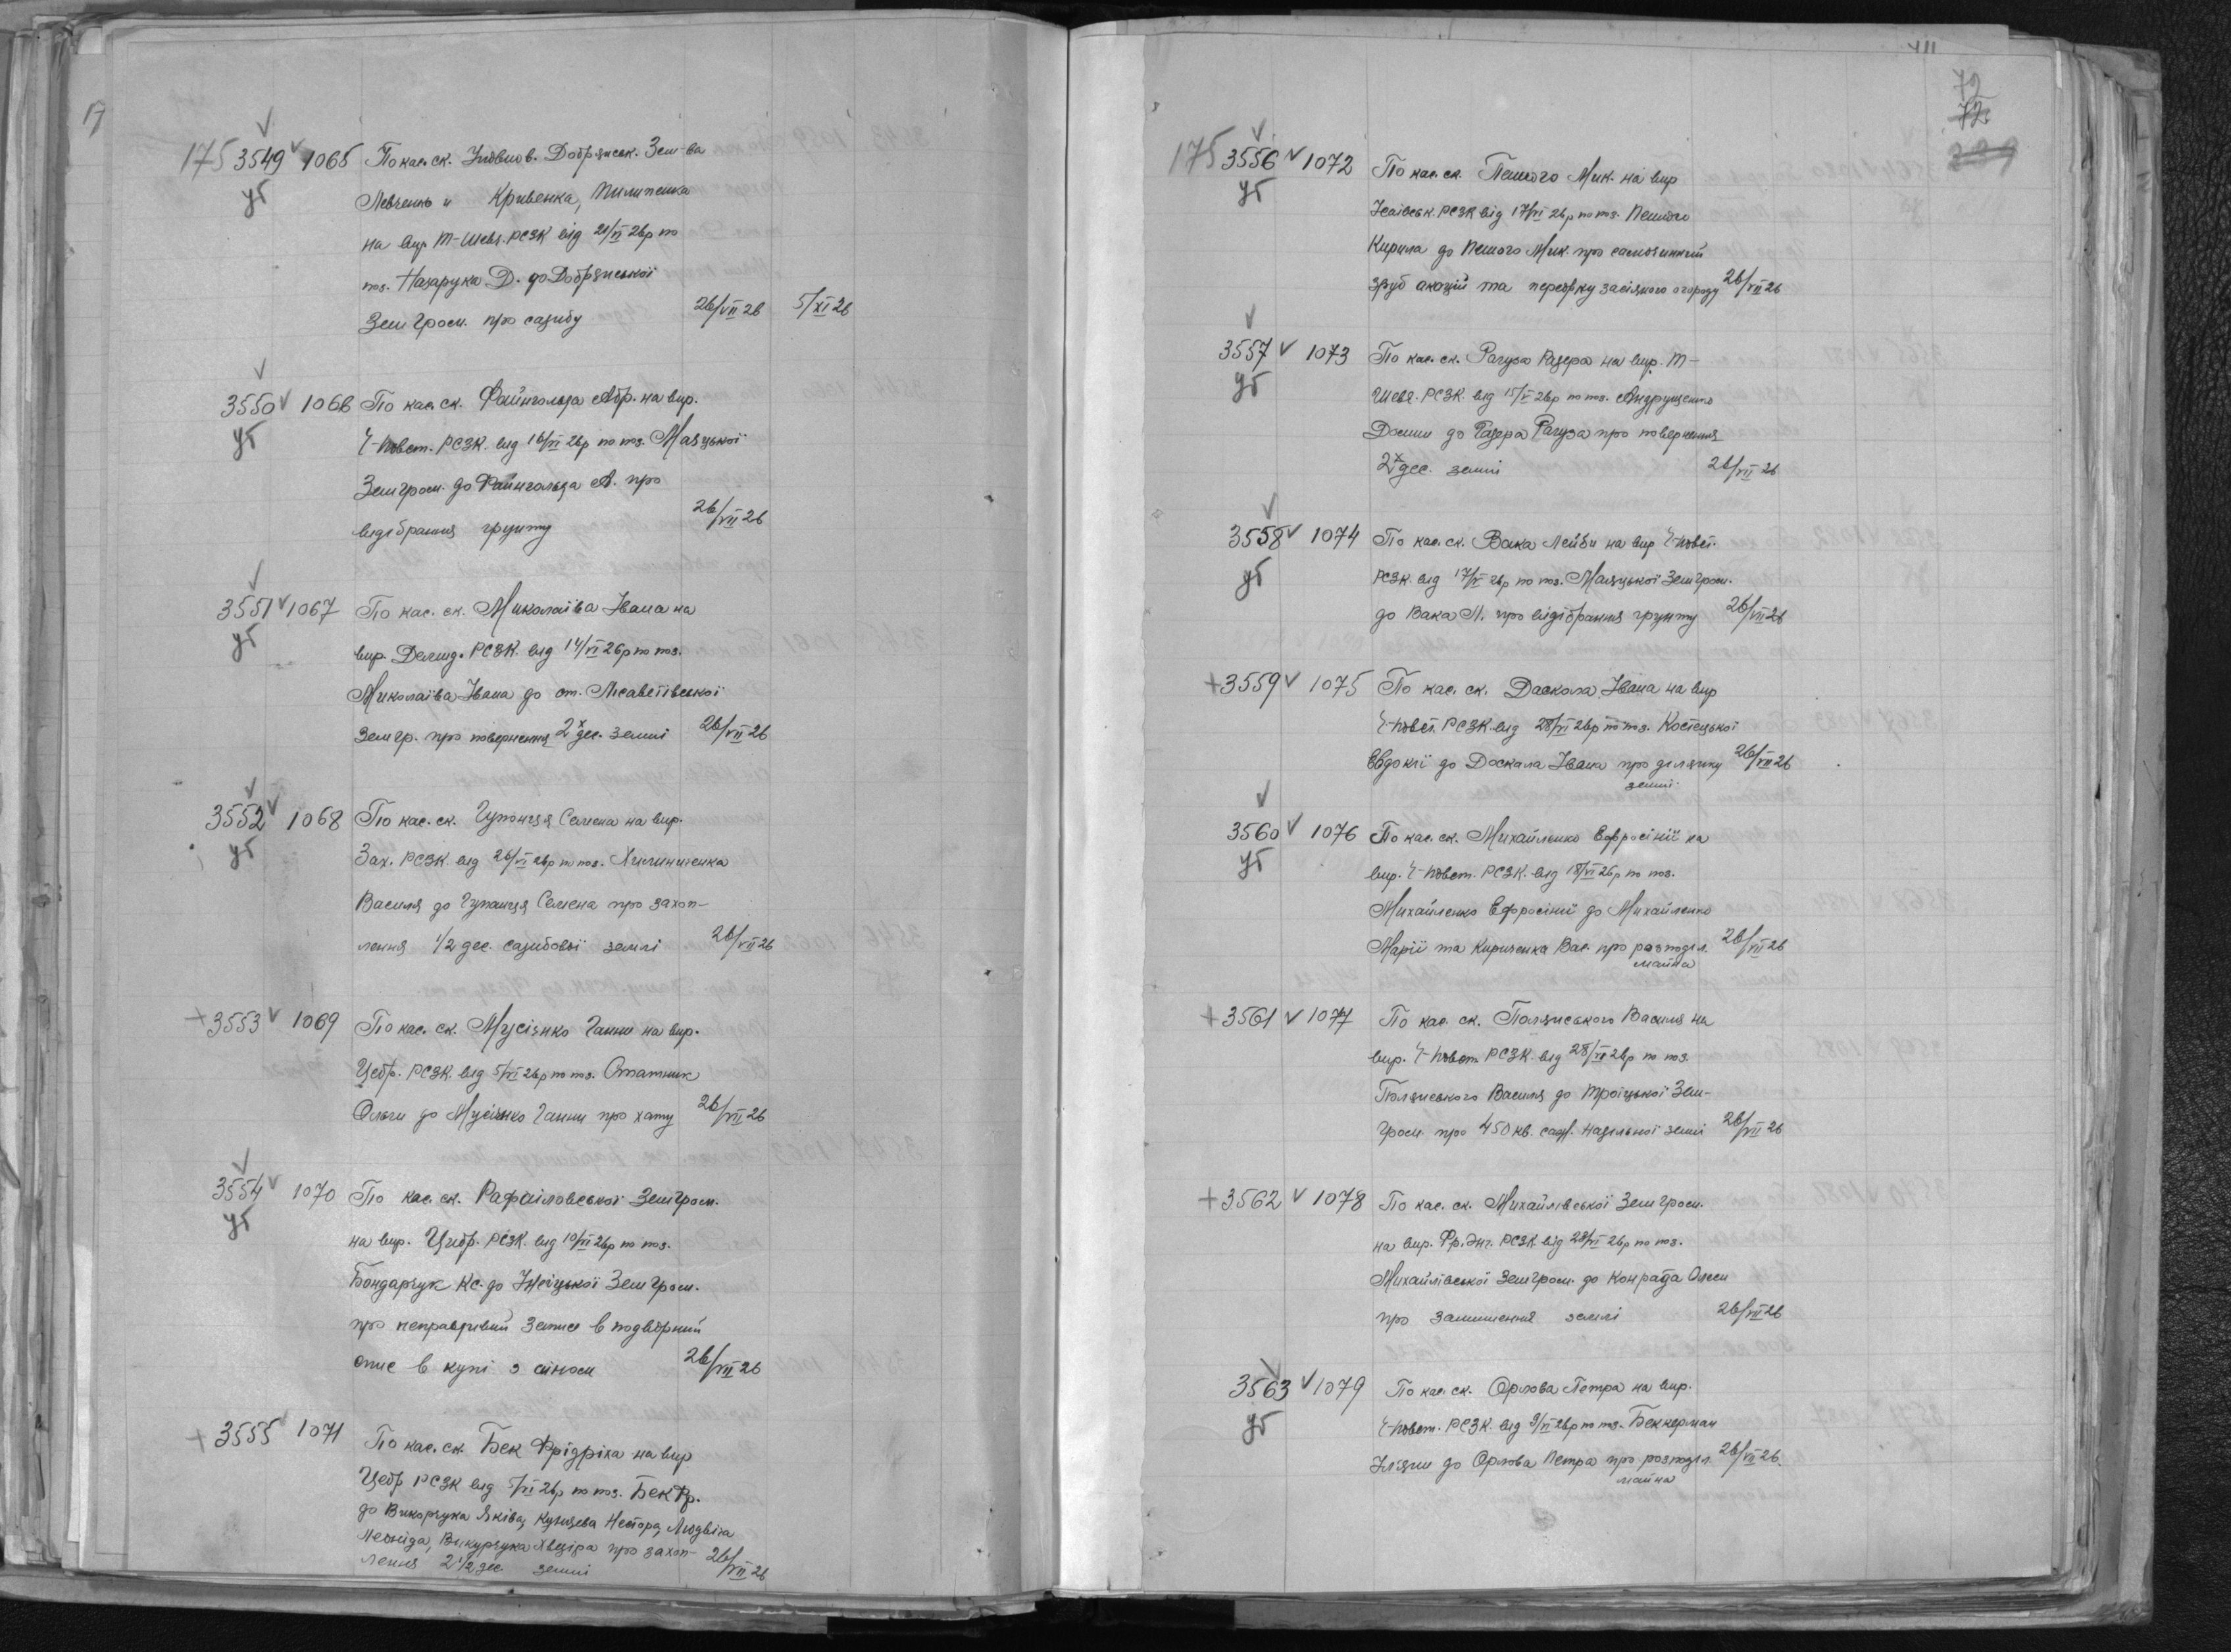 175 3549 1065 По кас. ск. Добрянськ. Зем-ва
уг Левченко и Кривенка, Пилипенка
на вир. Т-Шевч. РСЗК від 21/VI 26р по
поз. Назарука Д. до Добрянської
Земгром. про садибу 26/VII 26 5/XI 26
3550 1066 По кас. ск. Файнгольда Абр. на вир.
уг РСЗК. від 16/VI 26р по поз. Маяцької
Земгром. до Файнгольда А. про
відібрання грунту 26/VII 26
3551 1067 По кас. ск. Миколаїва Івана на
уг вир. РСЗК. від 14/VI 26р по поз.
Миколаїва Івана до ст. Лісаветівської
Земгр. про повернення 2х дес. землі 26/VII 26
3552 1068 По кас. ск. Семена на вир.
уг Зах. РСЗК. від 26/VI 26р по поз.
Василя до Семена про захоп-
лення 1/2 дес. садибової землі 26/VII 26
+3553 1069 По кас. ск. Мусієнко Ганни на вир.
Цебр. РСЗК. від 5/VI 26р по поз. Отатник
Ольги до Мусієнко Ганни про хату 26/VII 26
3554 1070 По кас. ск. Рафаіловської Земгром.
уг на вир. Цебр. РСЗК. від 10/VI 26р по поз.
Бондарчук Кс. до Земгром.
про неправдивий запис в подвірний
опис в купі з сином 26/VII 26
+3555 1071 По кас. ск. Бек Фрідріха на вир
Цебр РСЗК від 5/VI 26р по поз. Бек Фр.
до Викорчука Яківа, Кузнцева Нестора, Людвіга
Леоніда, Викурчука про захоп-
лення 2 1/2 дес. землі 26/VII 26
72
72
175 3556 1072 По кас. ск. Пешого Мик. на вир
уг Ісаівськ. РСЗК від 17/VI 26р по поз. Пешого
Кирила до Пешого Мик. про самочинний
зруб акацій та засіяного огороду 26/VII 26
3557 1073 По кас. ск. Рагуза Газера на вир. Т-
уг Шевч. РСЗК. від 15/V 26р по поз. Андрущенко
Домни до Газера Рагуза про повернення
2х дес. землі 26/VII 26
3558 1074 По кас. ск. Вака Лейби на вир
уг РСЗК. від 17/VI 26р по поз. Маяцької Земгром.
до Вака Л. про відібрання грунту 26/VII 26
+3559 1075 По кас. ск. Даскала Івана на вир
РСЗК від 28/VI 26р по поз. Костецької
Евдокії до Доскала Івана про ділянку 26/VII 26
землі
3560 1076 По кас. ск. Михайленко Ефросінії на
уг вир. РСЗК. від 18/VI 26р по поз.
Михайленко Ефросінії до Михайленко
Марії та Кириченка Вас. про розподіл. 26/VII 26
майна
+3561 1077 По кас. ск. Полянського Василя на
вир. РСЗК. від 28/VI 26р по поз.
Полянського Василя до Троіцької Зем-
гром. про 450 кв. саж. надільної землі 26/VII 26
+3562 1078 По кас. ск. Михайлівської Земгром.
на вир. Фр. Энг. РСЗК від 28/VI 26р по поз.
Михайлівської Земгром. до Конрада Олени
про залишення землі 26/VII 26
3563 1079 По кас. ск. Орлова Петра на вир.
уг РСЗК. від 9/VI 26р по поз. Беккерман
до Орлова Петра про розподіл 26/VII 26
майна